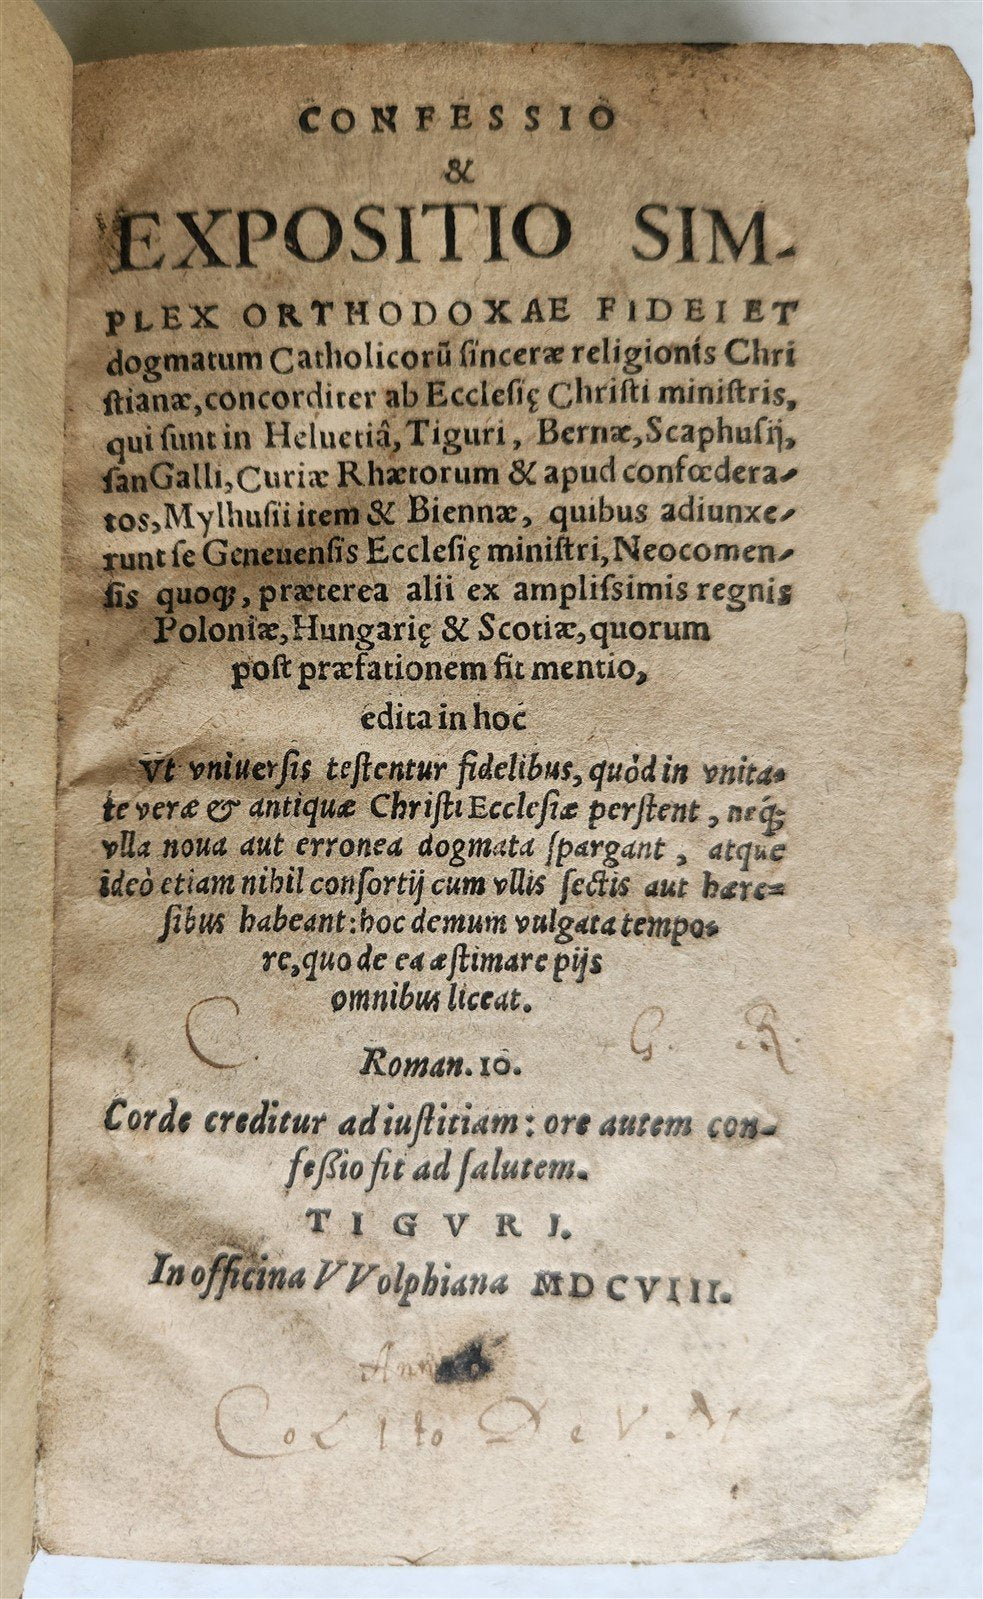 CONFESSIO
&
EXPOSITIO SIM-
PLEX ORTHODOXAE FIDEI ET
dogmatum Catholicorũ sinceræ religionis Chri
stianæ, concorditer ab Ecclesię Christi ministris,
qui sunt in Heluetiâ, Tiguri, Bernæ, Scaphusij,
sanGalli, Curiæ Rhætorum & apud confœdera-
tos, Mylhusii item & Biennæ, quibus adiunxe-
runt se Geneuensis Ecclesię ministri, Neocomen-
sis quoq;, præterea alii ex amplissimis regnis
Poloniæ, Hungarię & Scotiæ, quorum
post præfationem fit mentio,
edita in hoc
Vt vniuersis testentur fidelibus, quòd in vnita-
te veræ & antiquæ Christi Ecclesiæ perstent, neq́;
vlla noua aut erronea dogmata spargant, atque
ideò etiam nihil consortij cum vllis sectis aut hære=
sibus habeant: hoc demum vulgata tempo-
re, quo de ea æstimare pijs
omnibus liceat.
C. G. R.
Roman. 10.
Corde creditur ad iustitiam: ore autem con-
feßio fit ad salutem.
TIGVRI.
In officina VVolphiana MDCVIII.